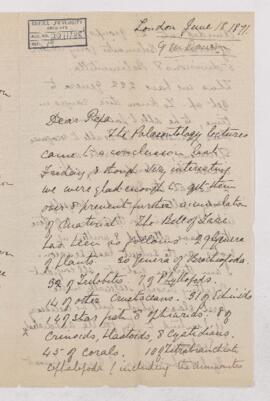 London June 18. 1871.
Dear Papa
The Palaeontology lectures
came to a conclusion last
Friday & though very interesting
we were glad enough to get them
over & prevent further accumulation
of material. The Bill of Fare
has been as follows 29 Genera
of plants. 30 genera of Brachiopods.
32 of Trilobites 7 of Phyllopods.
14 of other Crustaceans. 31 of Echinids
14 of Star fish 8 of
Crinoids, Blastoids, 8 Cystidians.
45 of Corals. 10 of Tetrabranchiate
Cephalopoda, including the Ammonites